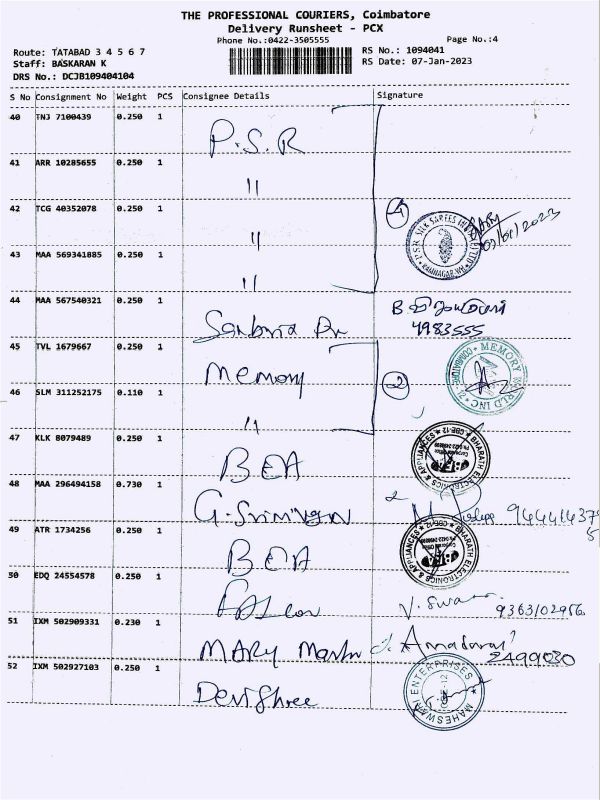 THE PROFESSIONAL COURIERS, Coimbatore
Delivery Runsheet - PCX
Phone No.:0422-3505555
Page No.:4
Route: TATABAD 3 4 5 6 7
RS No.: 1094041
Staff: BASKARAN K
RS Date: 07-Jan-2023
DRS No.: DCJB109404104
S No Consignment No Weight PCS Consignee Details Signature
40 TNJ 7100439 0.250 1 P.S.R
41 ARR 10285655 0.250 1 "
42 TCG 40352078 0.250 1 " 4
P.S.R SILK SAREES INDIA (P) LTD RAMNAGAR
43 MAA 569341885 0.250 1 "
44 MAA 567540321 0.250 1
4983555
45 TVL 1679667 0.250 1 Memory 2
MEMORY WORLD INC COIMBATORE-12
46 SLM 311252175 0.110 1 "
47 KLK 8079489 0.250 1 BEA
BHARATH ELECTRONICS & APPLIANCES CBE-12
48 MAA 296494158 0.730 1
49 ATR 1734256 0.250 1 BEA
BHARATH ELECTRONICS & APPLIANCES CBE-12
50 EDQ 24554578 0.250 1
9363102956
51 IXM 502909331 0.230 1 MARY
2499030
52 IXM 502927103 0.250 1 DeviShree
MAHESWARI ENTERPRISES